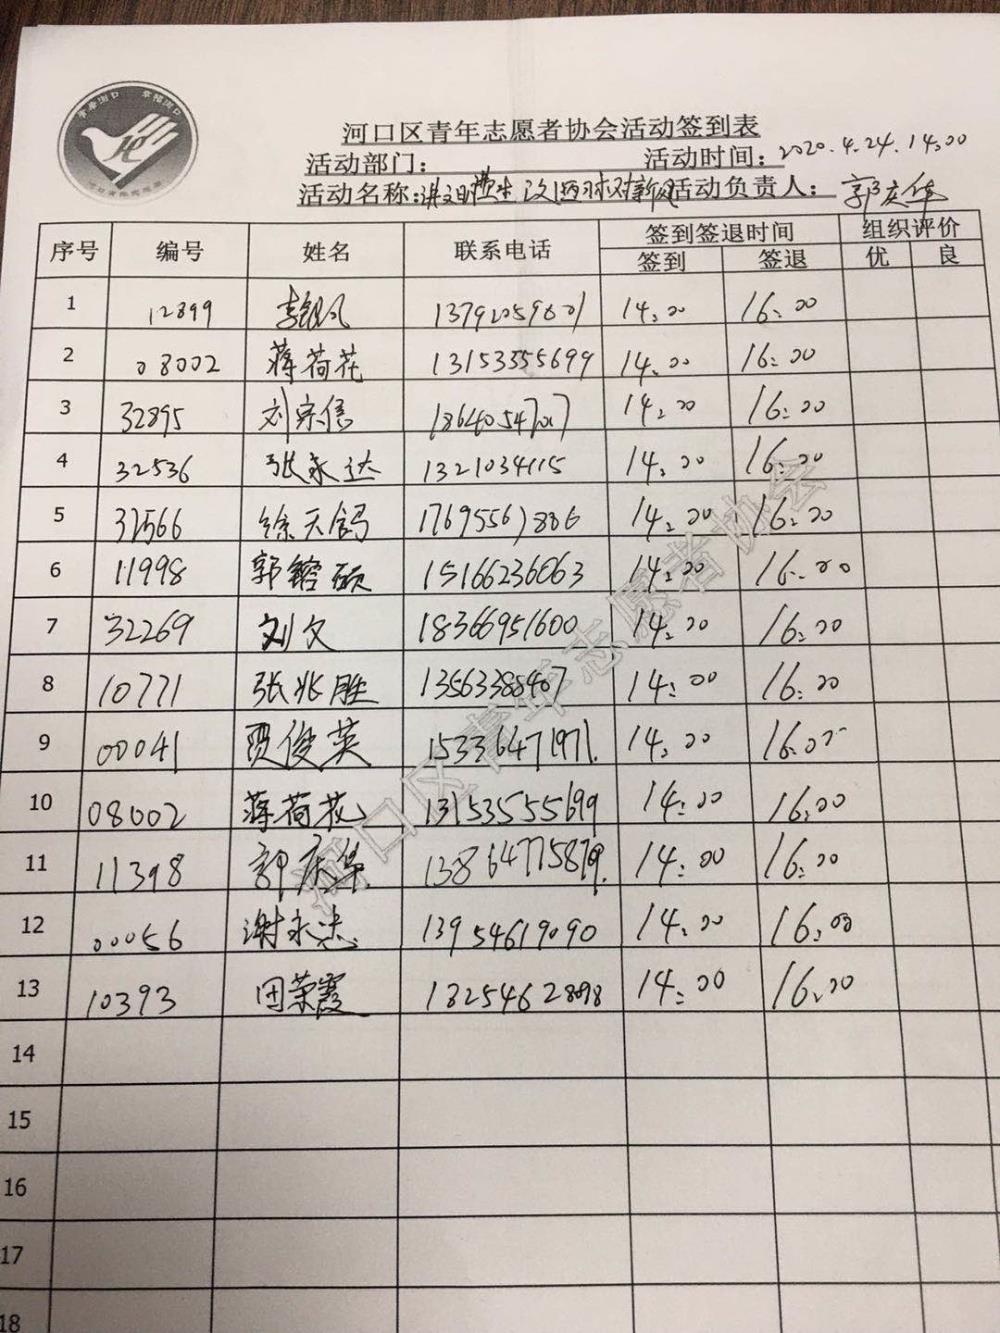 河口区青年志愿者协会活动签到表
活动部门： 活动时间：2020.4.24.14:00
活动名称： 活动负责人：郭庆华
序号 编号 姓名 联系电话 签到签退时间 组织评价
签到 签退 优 良
1 12899 14:00 16:00
2 08002 蒋荷花 13153555699 14:00 16:00
3 32895 刘宗信 14:00 16:00
4 32536 张永达 1321034115 14:00 16:00
5 32566 徐天鸽 14:00 16:00
6 11998 郭镕硕 15166236063 14:00 16:00
7 32269 刘文 18366951600 14:00 16:00
8 10771 张兆胜 13563385407 14:00 16:00
9 00041 贾俊英 15336471971. 14:00 16:00
10 08002 蒋荷花 13153555699 14:00 16:00
11 11398 郭庆华 13864775879. 14:00 16:00
12 00056 谢永志 13954619090 14:00 16:00
13 10393 田荣霞 13254628098 14:00 16:00
14
15
16
17
18
河口区青年志愿者协会